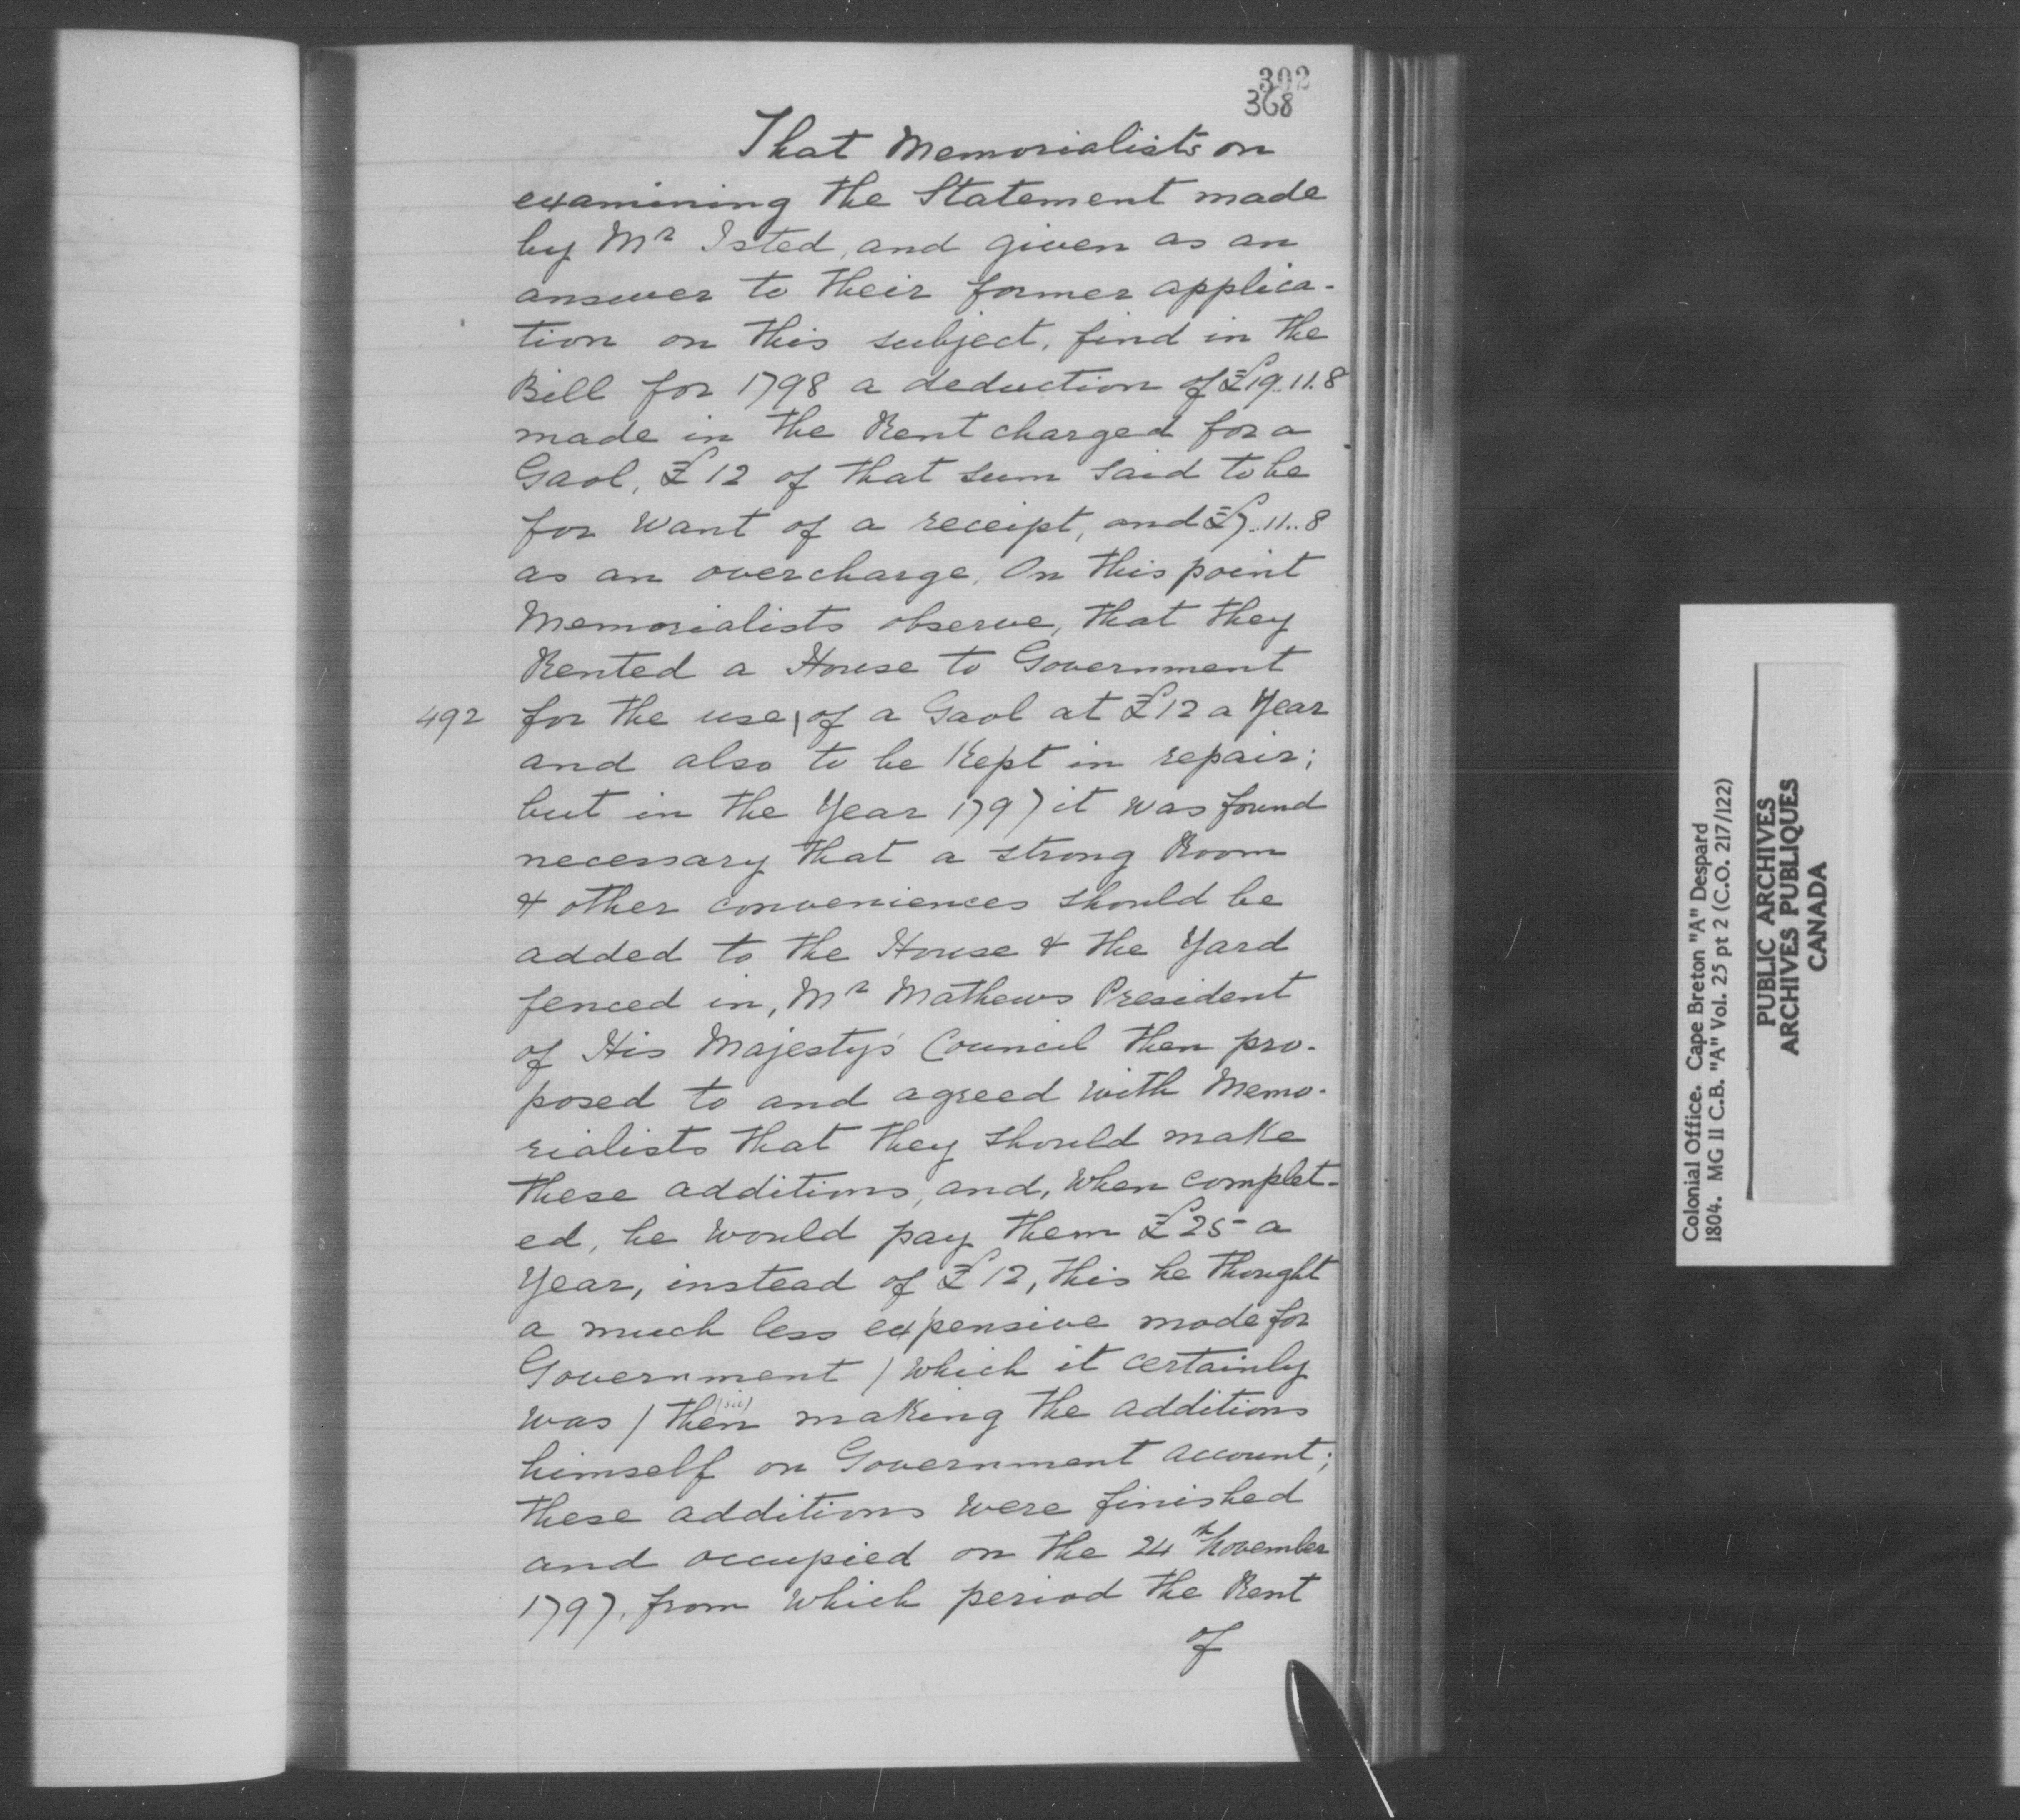 302
368
That Memorialists on
examining the Statement made
by Mr Isted, and given as an
answer to their former applica-
tion on this subject, find in the
Bill for 1798 a deduction of £19.11.8
made in the Rent charged for a
Gaol, £12 of that sum said to be
for want of a receipt, and £7..11..8
as an overcharge. On this point
Memorialists observe, that they
Rented a House to Government
492 for the use | of a Gaol at £12 a Year
and also to be Kept in repair;
but in the Year 1797 it was found
necessary that a strong Room
& other conveniences should be
added to the House & the Yard
fenced in, Mr Mathews President
of His Majesty's Council then pro-
posed to and agreed with Memo-
rialists that they should make
these additions, and, when complet-
ed, he would pay them £25- a
Year, instead of £12, this he thought
a much less expensive mode for
Government / which it certainly
was / then (sic) making the additions
himself on Government account;
these additions were finished
and occupied on the 24th November
1797, from which period the Rent
of
Colonial Office. Cape Breton "A" Despard
1804. MG 11 C.B. "A" Vol. 25 pt 2 (C.O. 217/122)
PUBLIC ARCHIVES
ARCHIVES PUBLIQUES
CANADA